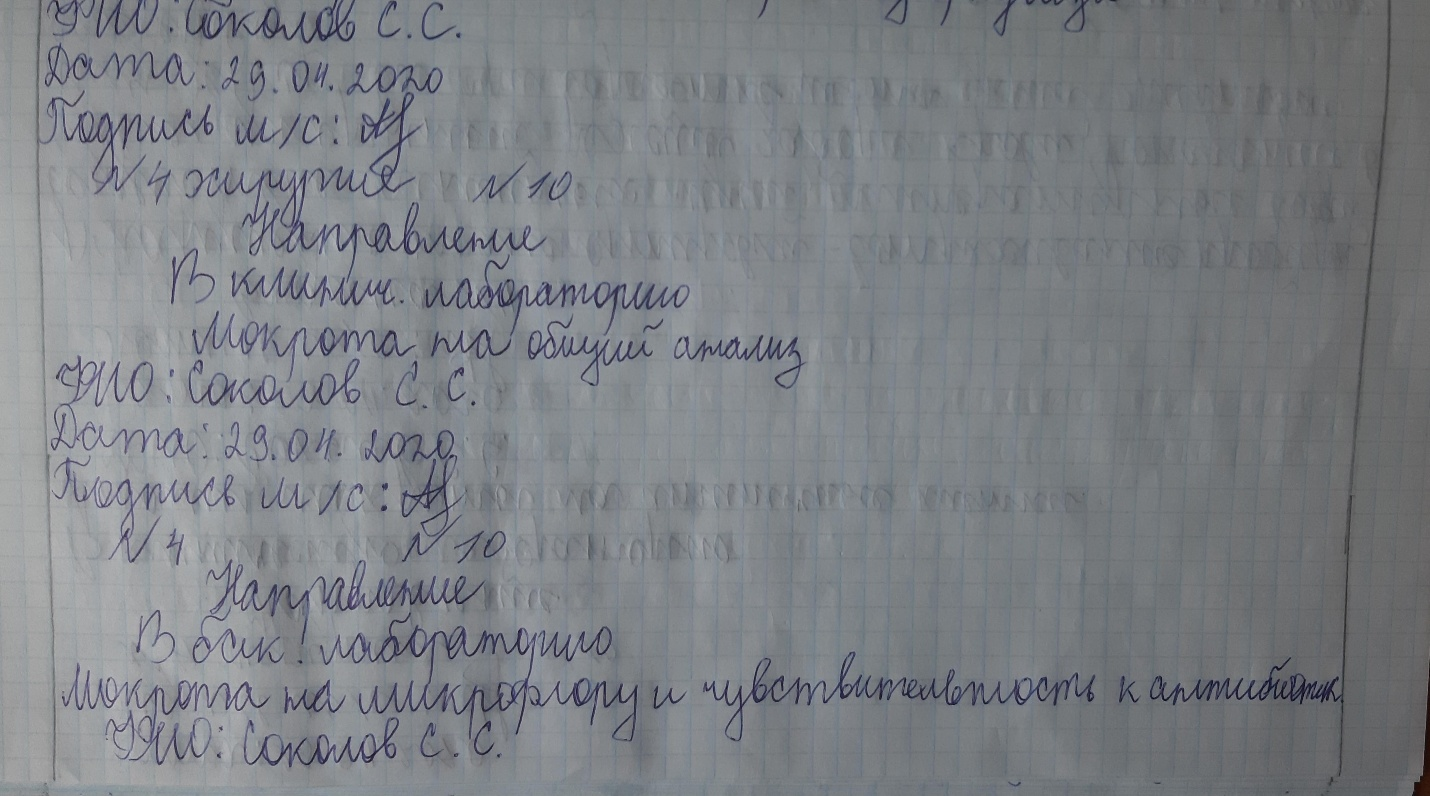 ФИО: Соколов С. С.
Дата: 29.04.2020
Подпись м/с:
N 4 хирургия N 10
Направление
В клинич. лабораторию
Мокрота на общий анализ
ФИО: Соколов С. С.
Дата: 29.04.2020
Подпись м/с:
N 4 N 10
Направление
В бак. лабораторию
Мокрота на микрофлору и чувствительность к антибиотик.
ФИО: Соколов С. С.